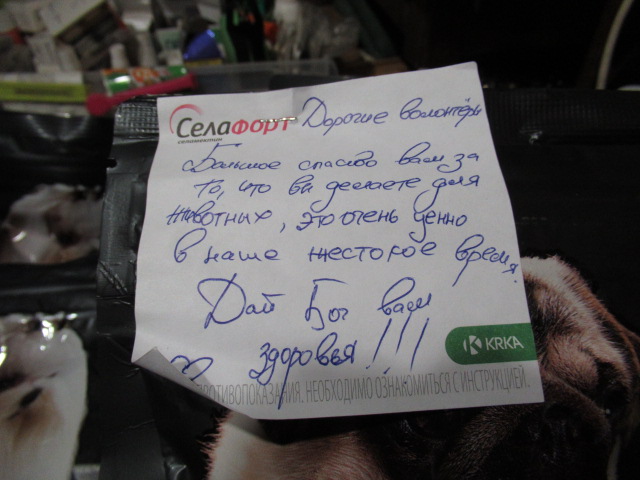 СЕЛАФОРТ Дорогие волонтёры
селамектин
Большое спасибо вам за
то, что вы делаете для
животных, это очень ценно
в наше жестокое время.
Дай Бог вам
здоровья!!!
KRKA
ПРОТИВОПОКАЗАНИЯ. НЕОБХОДИМО ОЗНАКОМИТЬСЯ С ИНСТРУКЦИЕЙ.